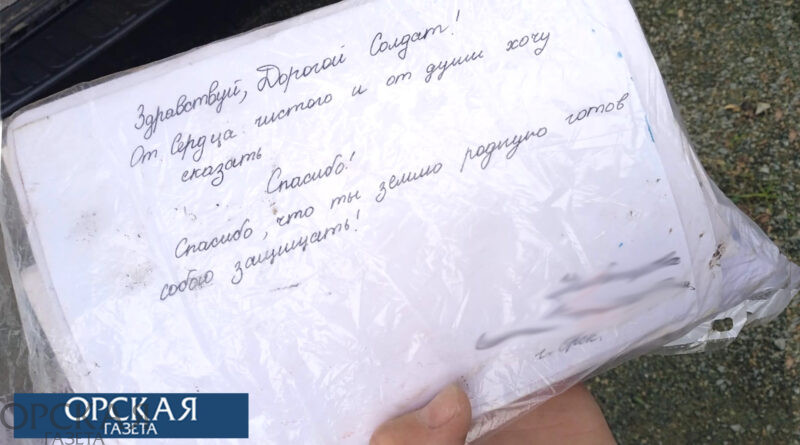 Здравствуй, Дорогой Солдат!
От Сердца чистого и от души хочу
сказать
Спасибо!
Спасибо, что ты землю родную готов
собою защищать!
г. Орск.
ОРСКАЯ
ГАЗЕТА
ОРСКАЯ
ГАЗЕТА